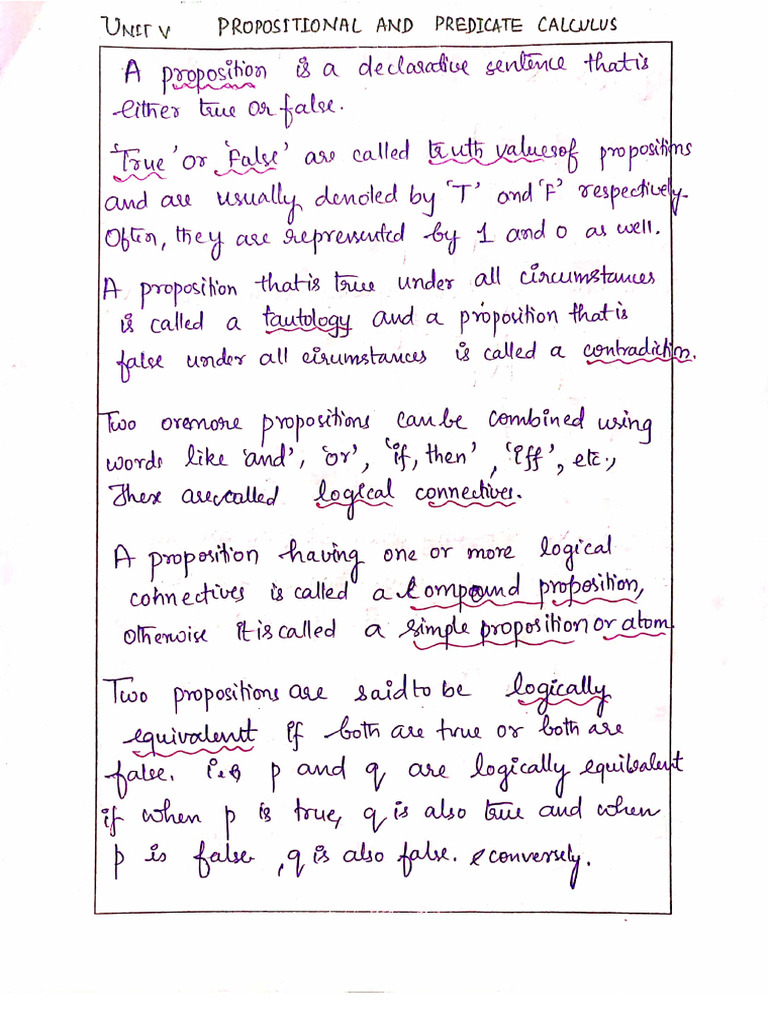 UNIT V PROPOSITIONAL AND PREDICATE CALCULUS
A proposition is a declarative sentence that is
either true or false.
'True' or 'False' are called truth values of propositions
and are usually denoted by 'T' and 'F' respectively.
Often, they are represented by 1 and 0 as well.
A proposition that is true under all circumstances
is called a tautology and a proposition that is
false under all cirumstances is called a contradiction.
Two or more propositions can be combined using
words like 'and', 'or', 'if, then', 'iff', etc.,
These are called logical connectives.
A proposition having one or more logical
connectives is called a compound proposition,
otherwise it is called a simple proposition or atom.
Two propositions are said to be logically
equivalent if both are true or both are
false. i.e., p and q are logically equivalent
if when p is true, q is also true and when
p is false, q is also false. & conversely.